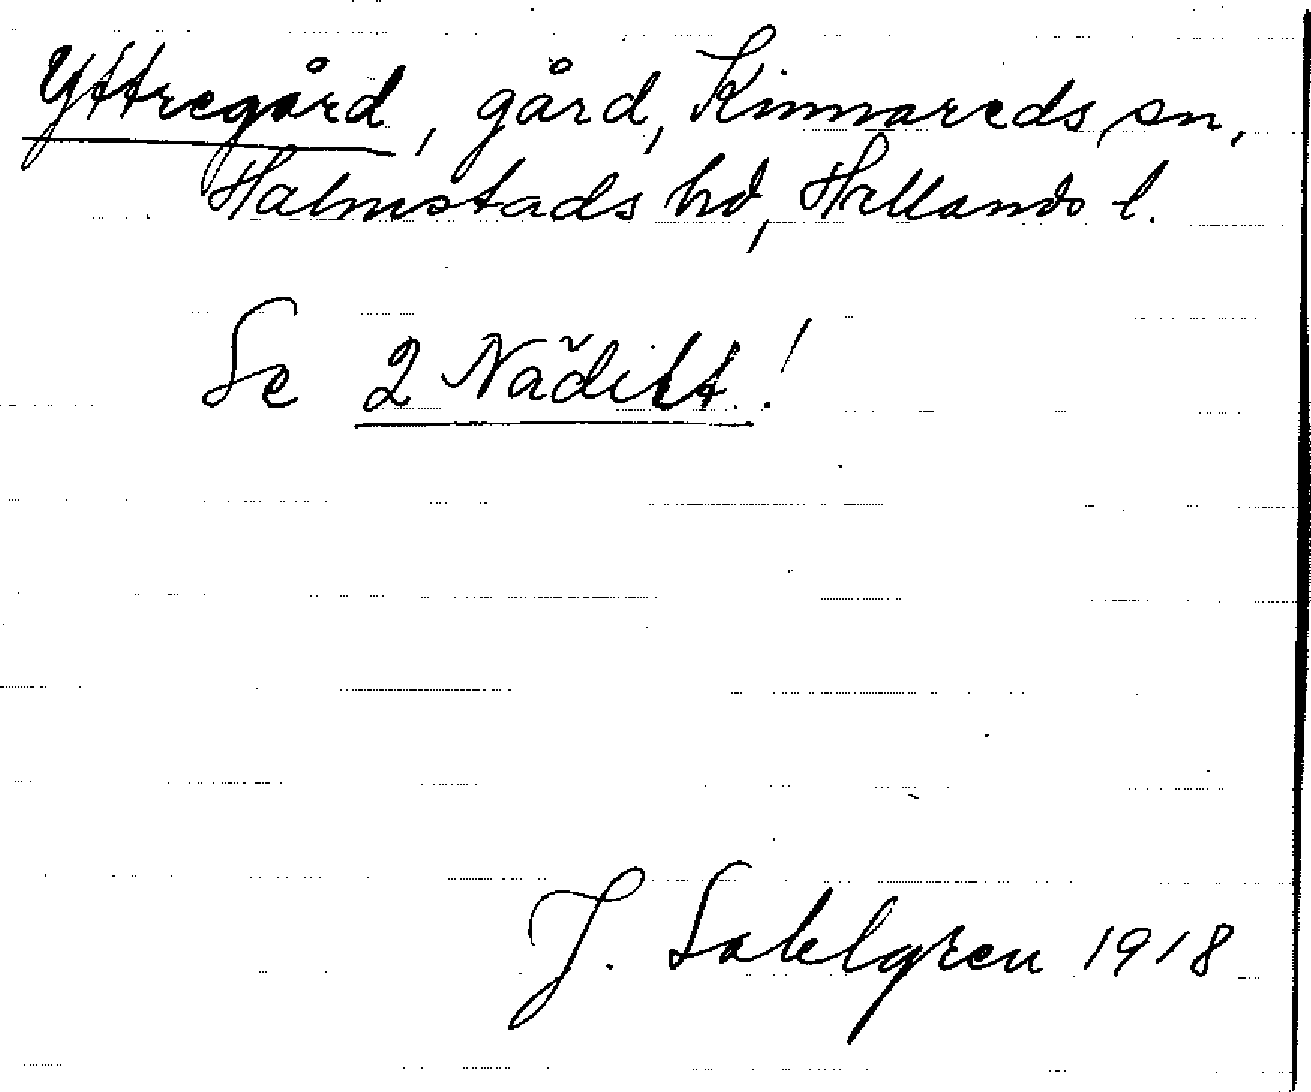 Yttregård, gård, Kinnareds sn,
Halmstads hd, Hallands l.
Se 2 Nädikt!
J. Sahlgren 1918